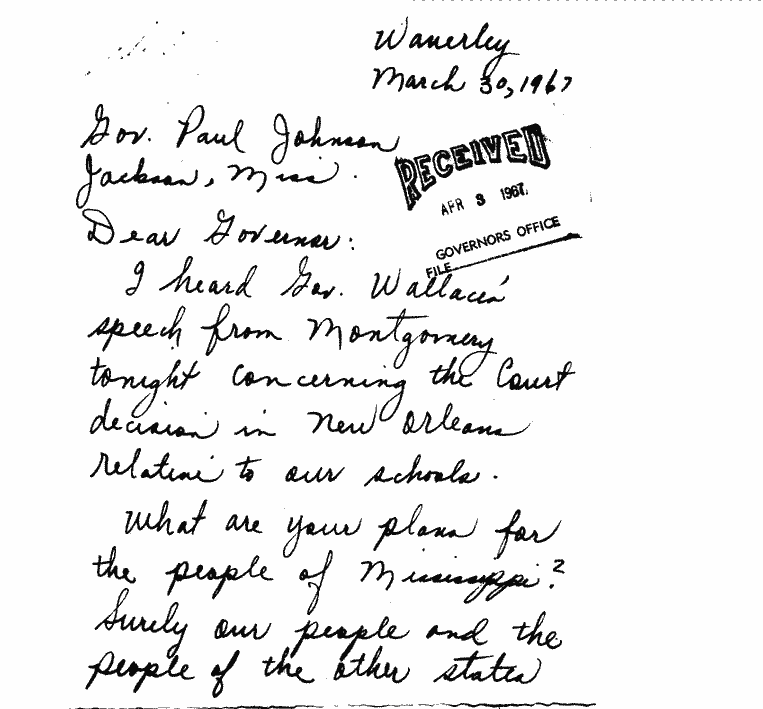 Waverley
March 30, 1967
Gov. Paul Johnson
Jackson, Miss.
RECEIVED
APR 3 1967.
GOVERNORS OFFICE
FILE
Dear Governor:
I heard Gov. Wallace's
speech from Montgomery
tonight concerning the Court
decision in New Orleans
relative to our schools.
What are your plans for
the people of Mississippi?
Surely our people and the
people of the other states